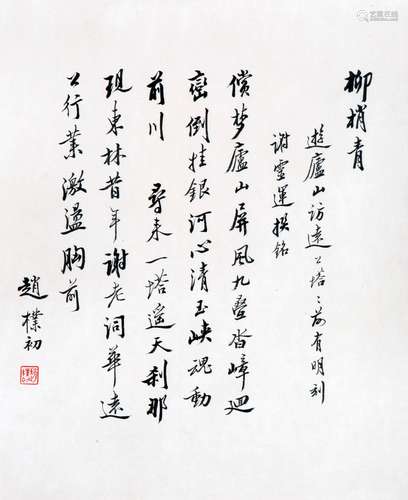 柳梢青
遊廬山訪遠公塔塔前有明刻
謝靈運撰銘
償夢廬山屏風九疊沓嶂迴
巒倒挂銀河心清玉峽魂動
前川 尋來一塔遙天刹那
現東林昔年謝老詞華遠
公行業激盪胸前
趙樸初